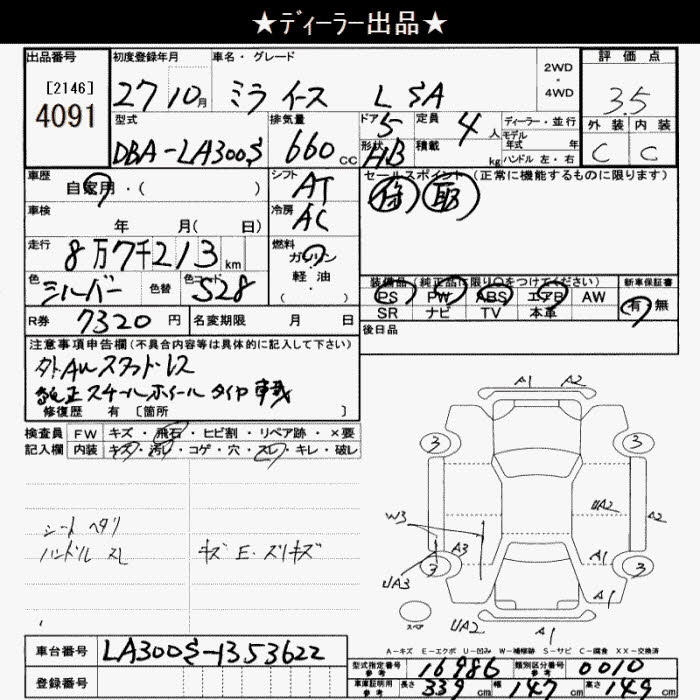 ★ディーラー出品★
出品番号 初度登録年月 車名・グレード 2WD・4WD 評価点
[2146] 4091 27 10月 ミライース L SA 3.5
型式 排気量 ドア 定員 ディーラー・並行 外装 内装
DBA-LA300S 660cc 5 4人 モデル年式 年 C C
形状 HB 積載 kg ハンドル 左・右
車歴 自家用・( ) シフト AT セールスポイント(正常に機能するものに限ります)
冷房 AC 取
車検 年 月( 日)
走行 8万7千213km 燃料 ガソリン・軽油( )
色 シルバー 色替 色コード S28
装備品(純正品に限り○をつけてください) 新車保証書
PS PW ABS エアB AW 有・無
SR ナビ TV 本革
R券 7320円 名変期限 月 日 後日品
注意事項申告欄(不具合内容等は具体的に記入して下さい)
外AWスタッドレス
純正スチールホイールタイヤ車載
修復歴 有 [箇所 ]
検査員記入欄 FW キズ・飛石・ヒビ割・リペア跡・×要
内装 キズ・汚れ・コゲ・穴・スレ・キレ・破レ
シートヘタリ
ハンドルスレ キズE・スリキズ
A1 A2
3 3
W3 UA2 A2
A3 A1
3 3
UA3 A1
スペア UA2 A1
A-キズ E-エクボ U-凹み W-補修跡 S-サビ C-腐食 XX-交換済
車台番号 LA300S-1353622
登録番号
型式指定番号参考 16986 類別区分番号参考 0010
車庫証明用参考 長さ 339cm 幅 147cm 高さ 149cm